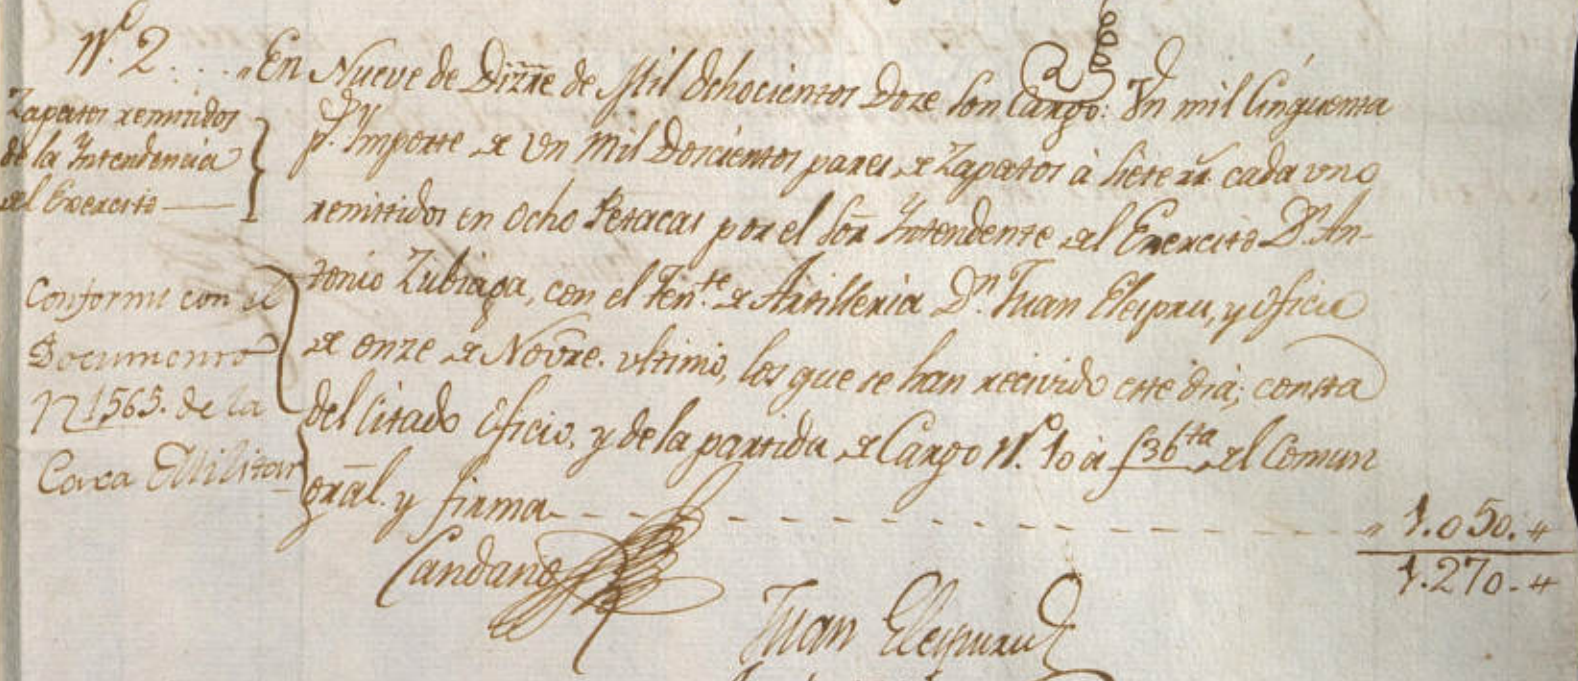 N.º 2. . . .
Zapatos remitidos
de la Intendencia
del Exercito
Conforme con el
Documento
N 1563. de la
Caxa Militar
"En Nueve de Dizre de Mil Ochocientos Doze son Cargo: Un mil Cinquenta
p.s Importe de Un Mil Doscientos pares de Zapatos à siete rr. cada uno
remitidos en ocho Petacas por el Sor Intendente del Exercito D.n An-
tonio Zubiaga, con el Ten.te de Artilleria D.n Juan Elespru, y oficio
de onze de Novre. ultimo, los que se han recivido este dia; consta
del citado Oficio, y de la partida de Cargo N.º 10 à f 36 ta del Comun
gral. y firma - - - - - - - - - - - - " 1.050. "
1.270. "
Candano
Juan Elespuru